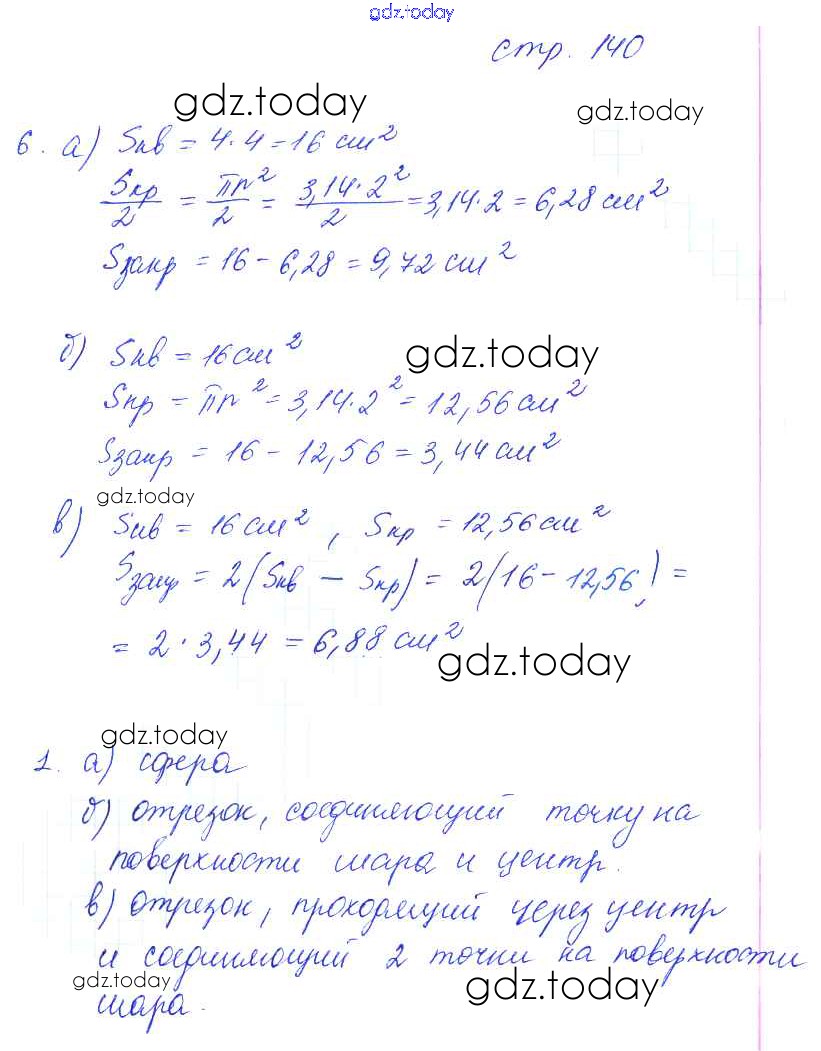 gdz.today
стр. 140
gdz.today
gdz.today
6. а) Sкв = 4·4 = 16 см²
Sкр/2 = πr²/2 = 3,14·2²/2 = 3,14·2 = 6,28 см²
Sзакр = 16 - 6,28 = 9,72 см²
б) Sкв = 16 см²
gdz.today
Sкр = πr² = 3,14·2² = 12,56 см²
Sзакр = 16 - 12,56 = 3,44 см²
gdz.today
в) Sкв = 16 см², Sкр = 12,56 см²
Sзакр = 2(Sкв - Sкр) = 2(16 - 12,56) =
= 2·3,44 = 6,88 см²
gdz.today
gdz.today
1. а) сфера
б) отрезок, соединяющий точку на
поверхности шара и центр.
в) отрезок, проходящий через центр
и соединяющий 2 точки на поверхности
gdz.today
gdz.today
шара.